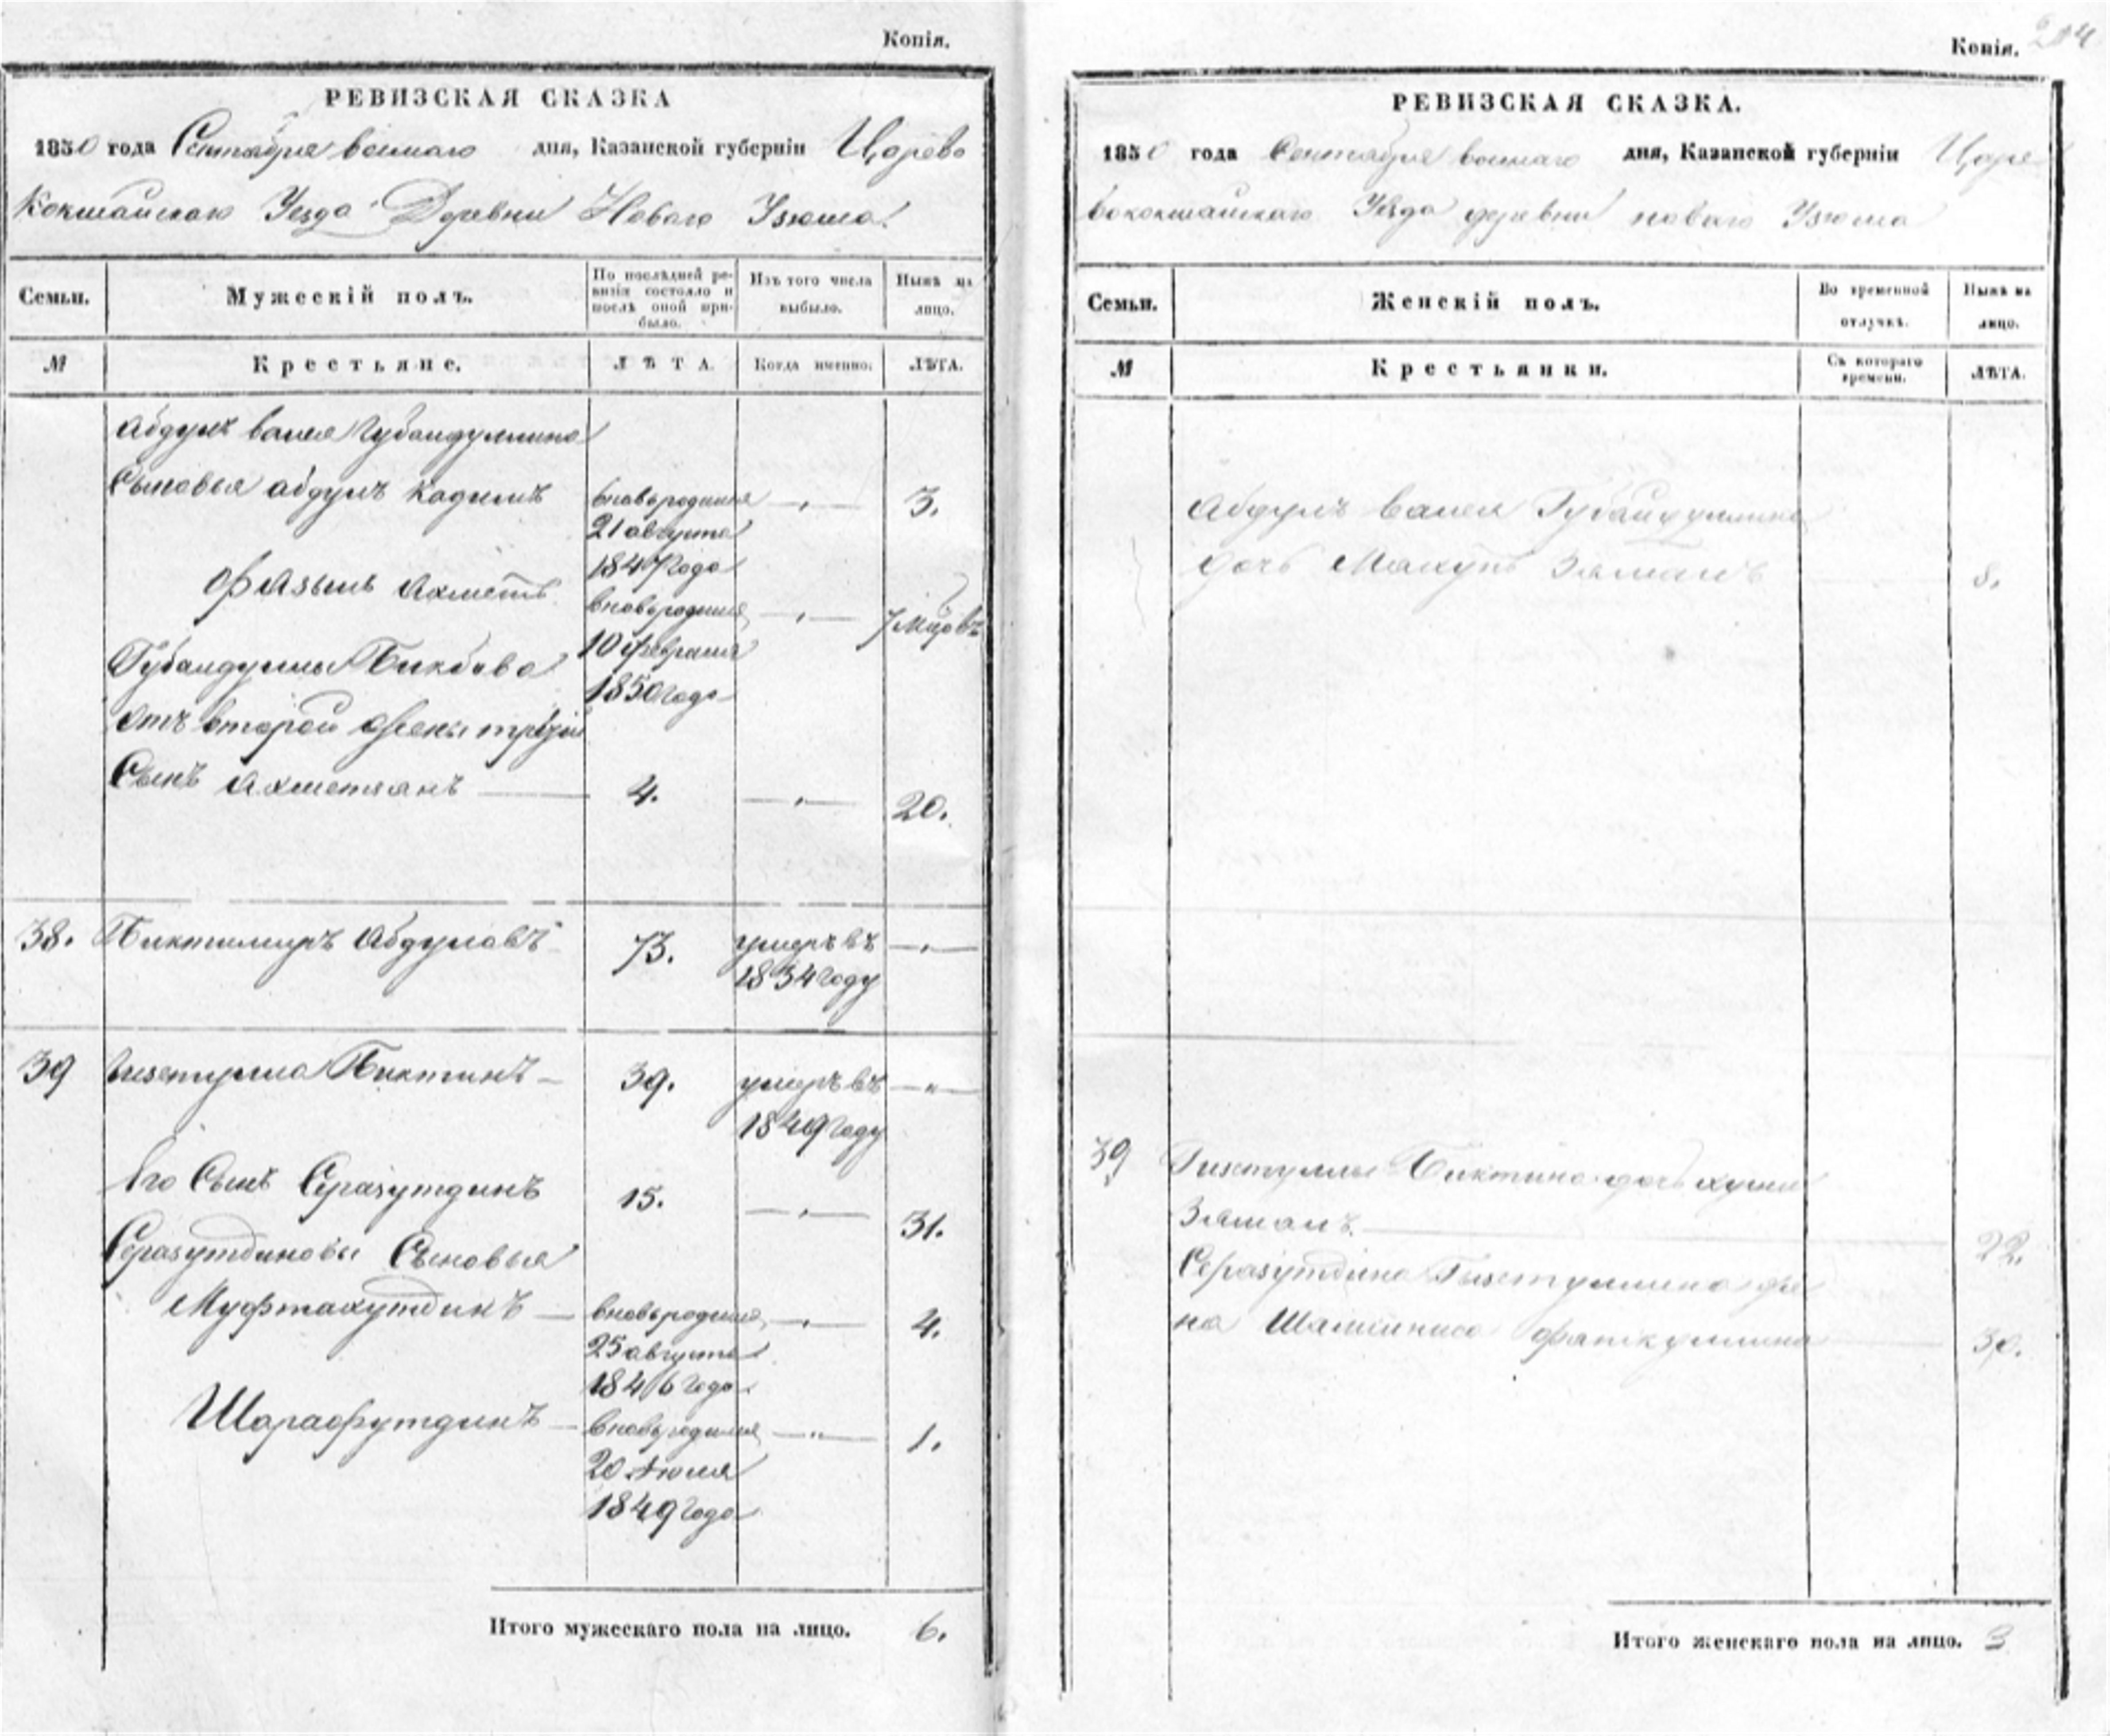 Копія.
РЕВИЗСКАЯ СКАЗКА
1850 года Сентября дня, Казанской губерніи Царево
Кокшайскаго Уѣзда Деревни Новаго Узюма
Семьи.
Мужескій полъ.
По послѣдней ре-
визіи состояло и
послѣ оной при-
было.
Изъ того числа
выбыло.
Нынѣ на
лицо.
№
Крестьяне.
ЛѢТА
Когда именно.
ЛѢТА.
Абдулъ валея Губайдуллина
Сыновья абдулъ кадимъ
вновьродился
21 августа
1847 года
3.
Ахметъ
вновьродился
10 февраля
1850 года
7 мцовъ
Губайдуллы Бикбова
отъ второй жены третій
Сынъ Ахметзянъ
4.
20.
38.
Биктимиръ Абдуловъ
73.
умеръ въ
1834 году
39
Биктинъ
39.
умеръ въ
1849 году
Его Сынъ Серазутдинъ
15.
31.
Серазутдиновы Сыновья
Муфтахутдинъ
вновьродился
25 августа
1846 года
4.
Шарафутдинъ
вновьродился
20 Июля
1849 года
1.
Итого мужескаго пола на лицо. 6.
Копія.
204
РЕВИЗСКАЯ СКАЗКА.
1850 года Сентября дня, Казанской губерніи Царе
вококшайскаго Уѣзда деревни новаго Узюма
Семьи.
Женскій полъ.
Во временной
отлучкѣ.
Нынѣ на
лицо.
№
Крестьянки.
Съ котораго
времени.
ЛѢТА.
Абдулъ валея Губайдуллина
дочь Зямалъ
8.
39
Гизетуллы Биктина дочь
Зямалъ
22.
Серазутдина Гизетуллина же
на
30.
Итого женскаго пола на лицо. 3